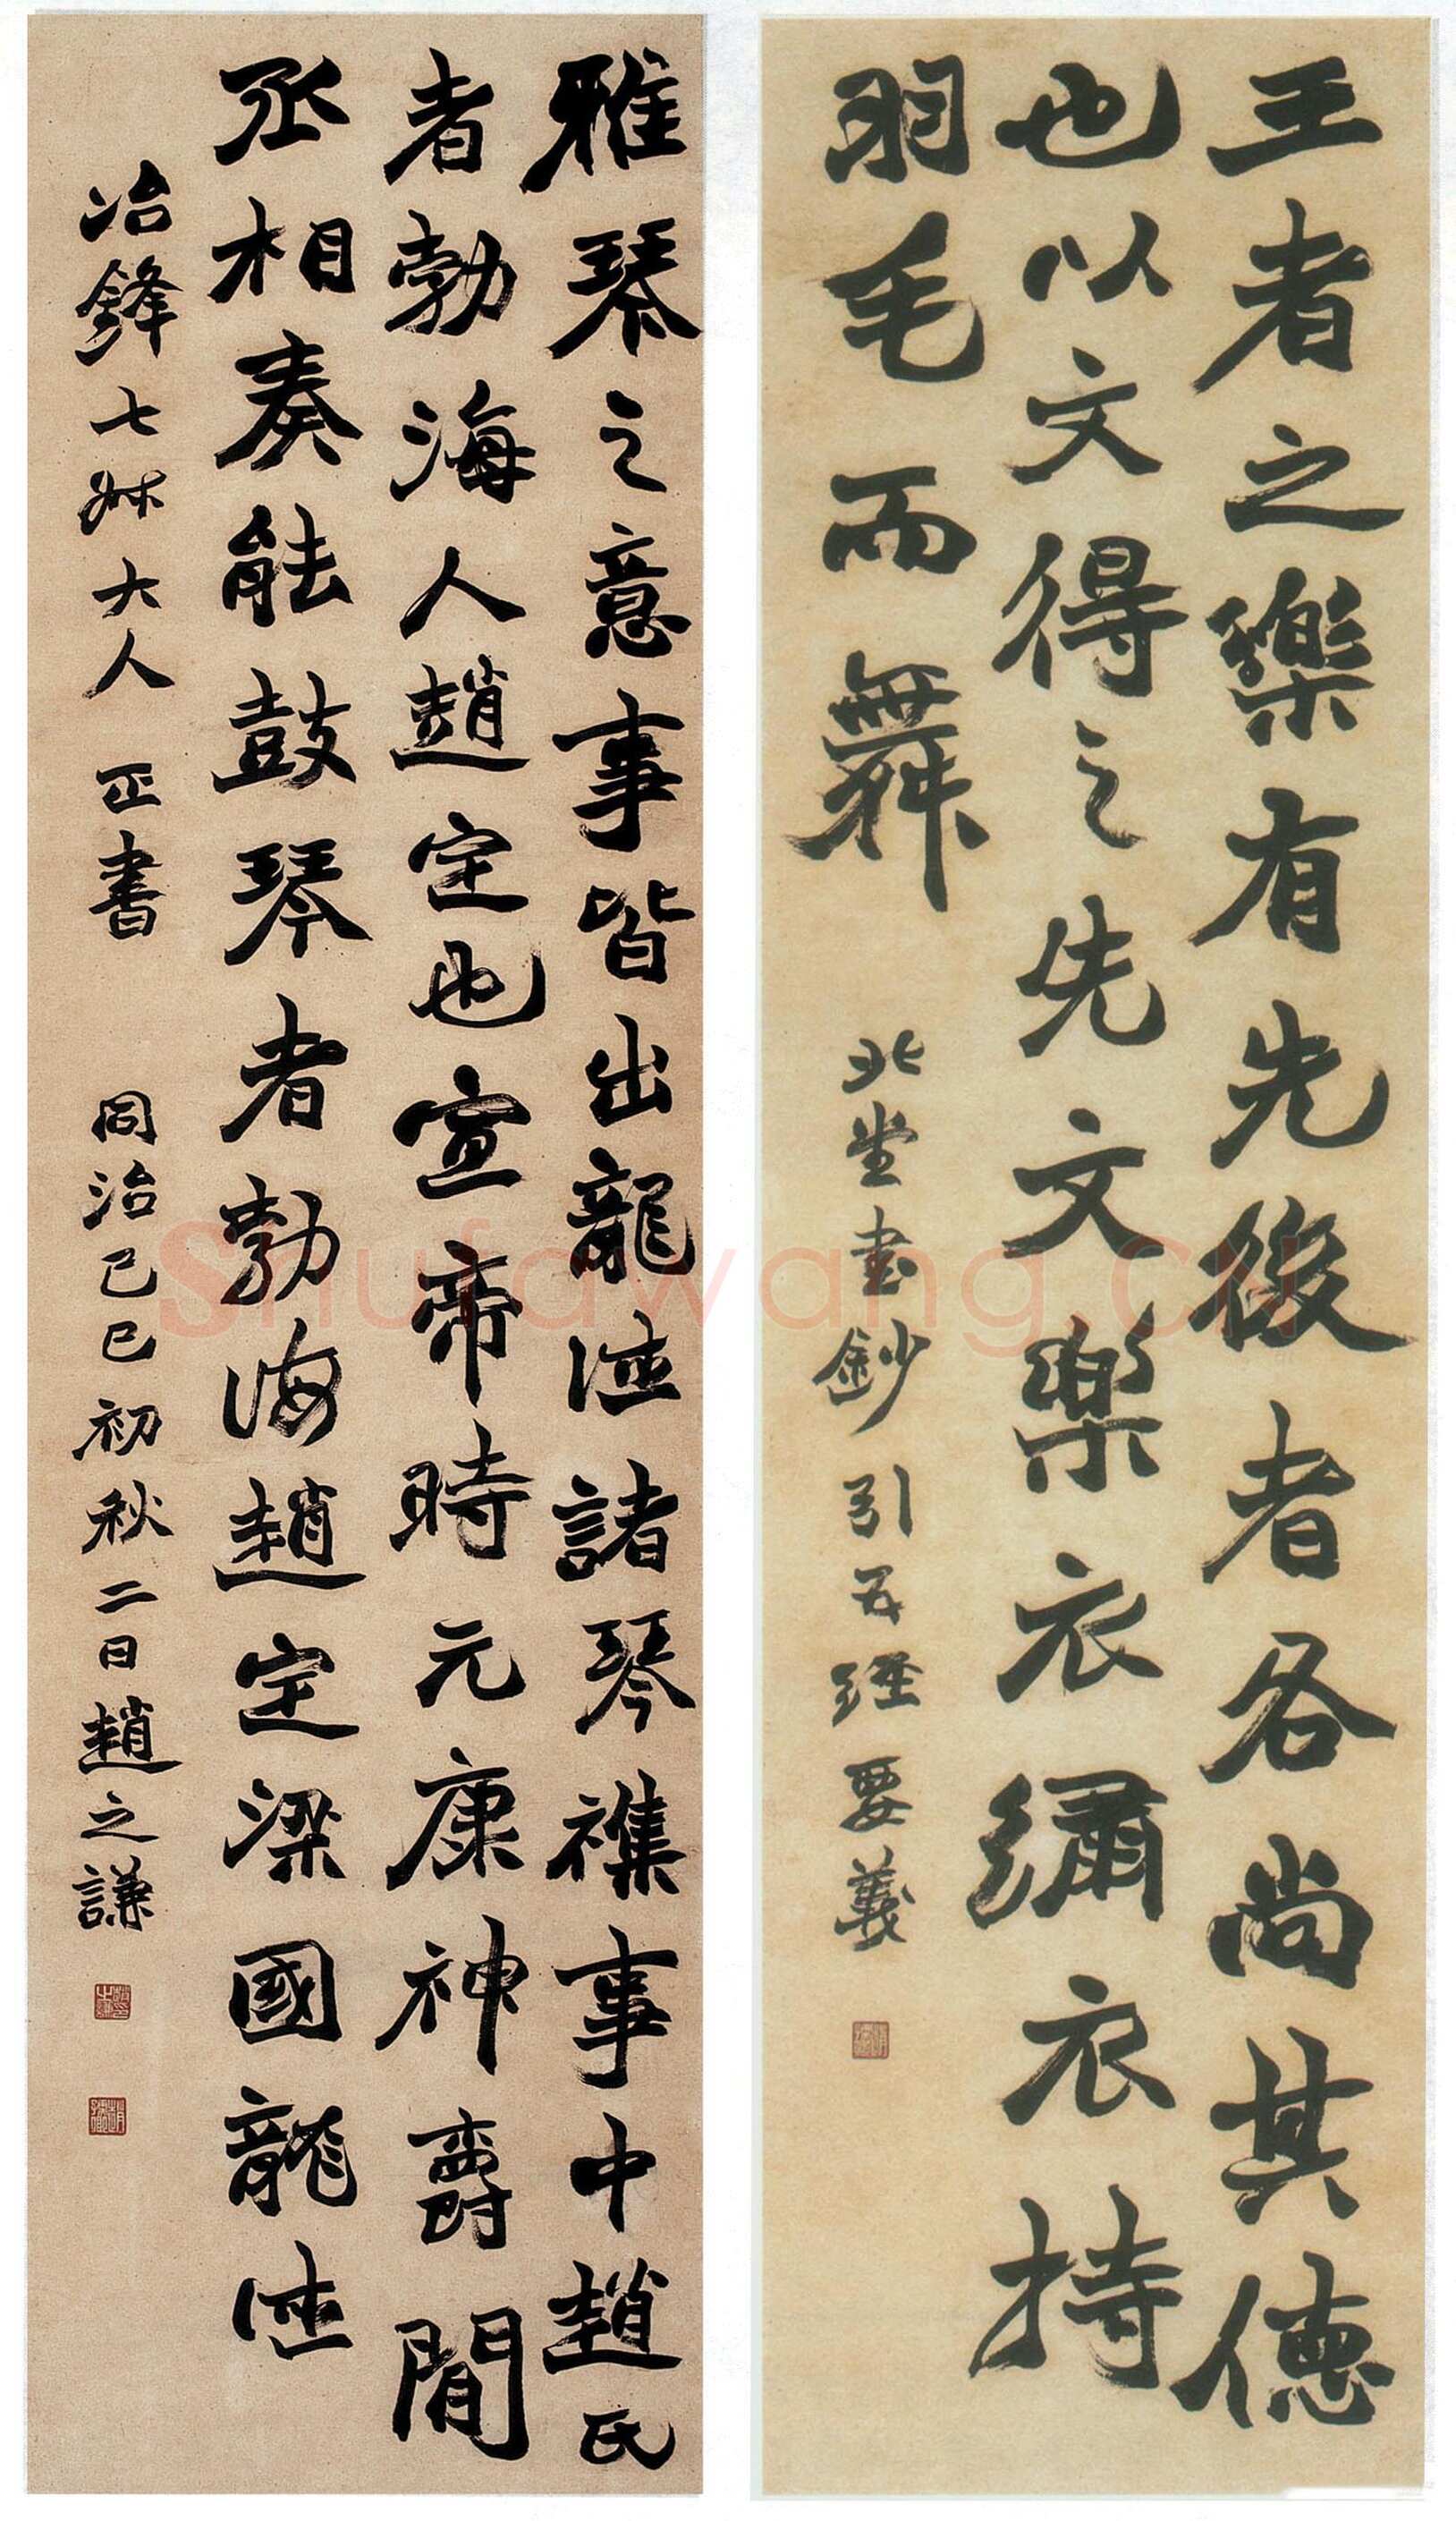 王者之樂有先後者各尚其德
也以文得之先文樂衣繡衣持
羽毛而舞
北堂書鈔引五經要義
雅琴之意事皆出龍德諸琴襍事中趙氏
者勃海人趙定也宣帝時元康神爵閒
丞相奏能鼓琴者勃海趙定梁國龍德
冶鋒七叔大人 正書 同治己巳初秋二日趙之謙
Shufawang.CN